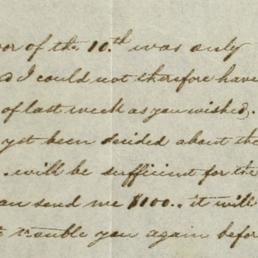 of the 10.th was only
I could not therefore have
of last week as you wished.
yet been decided about the
will be sufficient for the
send me $100.. it will
trouble you again before